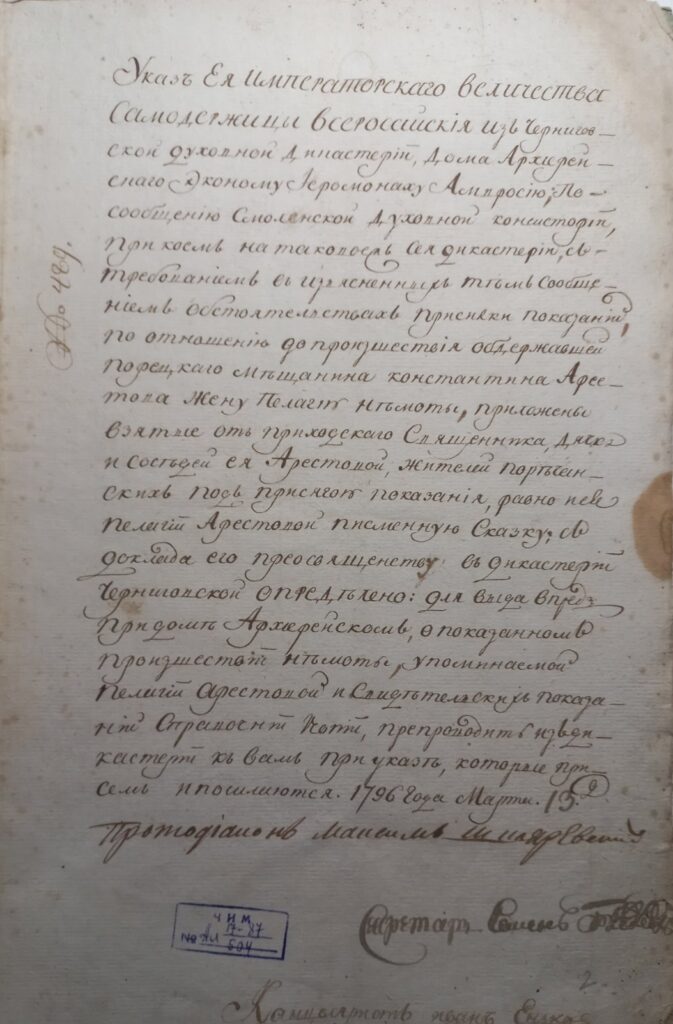 Указъ Ея Императорскаго Величества
Самодержицы Всеросайскія изъ Чернигов-
ской духовной дикастерїи, Дома Архиерей-
скаго Эконому Іеромонаху Амвросію; По
сообщенію Смоленской духовной консисторїи,
при коемъ на таковоежъ сея дикастерїи, съ
требованіемъ въ изъясненныхъ тѣмъ сообще-
ніемъ обстоятельствахъ присылки показанїй,
по отношенію до произшествія одержавшей
порецкаго мѣщанина константина Арес-
това жену Пелагію нѣмоты, приложены
взятые отъ приходскаго Священника, дячка
и сосѣдей ея Арестовой, жителей порѣчан-
скихъ подъ присягою показанія, равно и ея
пелагїи Арестовой писменную Сказку; съ
доклада его преосвященству въ дикастерїи
Черниговской опредѣлено: для вида впредь
при домѣ Архиерейскомъ, о показанномъ
произшествїи нѣмоты, упоминаемой
пелагїи Арестовой и Свидѣтельскихъ показа-
нїй Справочнїи Копїи, препроводить изъ ди-
кастерїи къ вамъ при указѣ, которые при
семъ и посилаются. 1796 Года Марта. 13 д
Протодіаконъ Максимъ
Секретарь Семенъ
Канцеляристъ иванъ
№ 489.
ЧИМ
№ Ал 17-87
504
2.